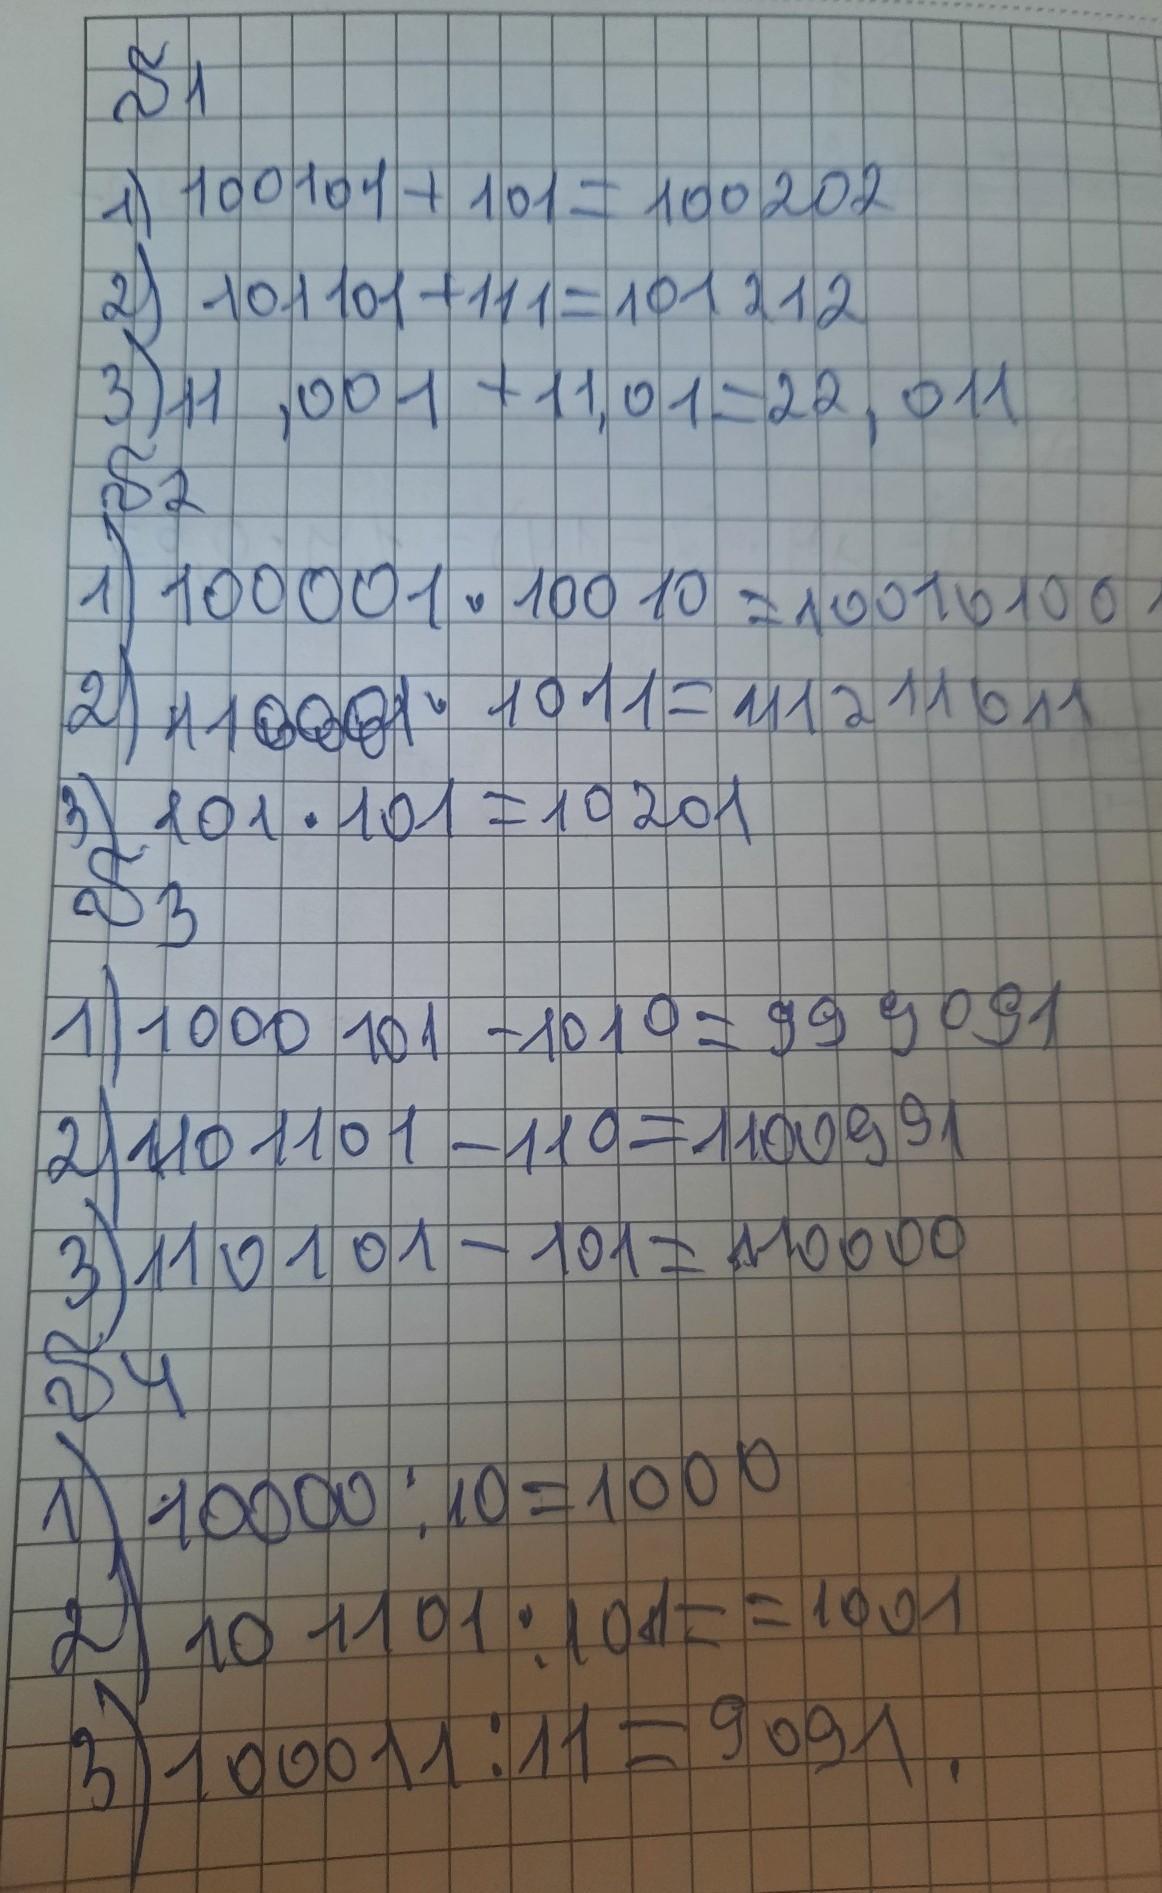 №1
1) 100101+101=100202
2) 101101+111=101212
3) 11,001+11,01=22,011
№2
1) 100001·10010=100101001
2) 110001· 1011=111211011
3) 101·101=10201
№3
1) 1000101-1010=999091
2) 1101101-110=1100991
3) 110101-101=110000
№4
1) 10000:10=1000
2) 101101:101==1001
3) 100011:11=9091.